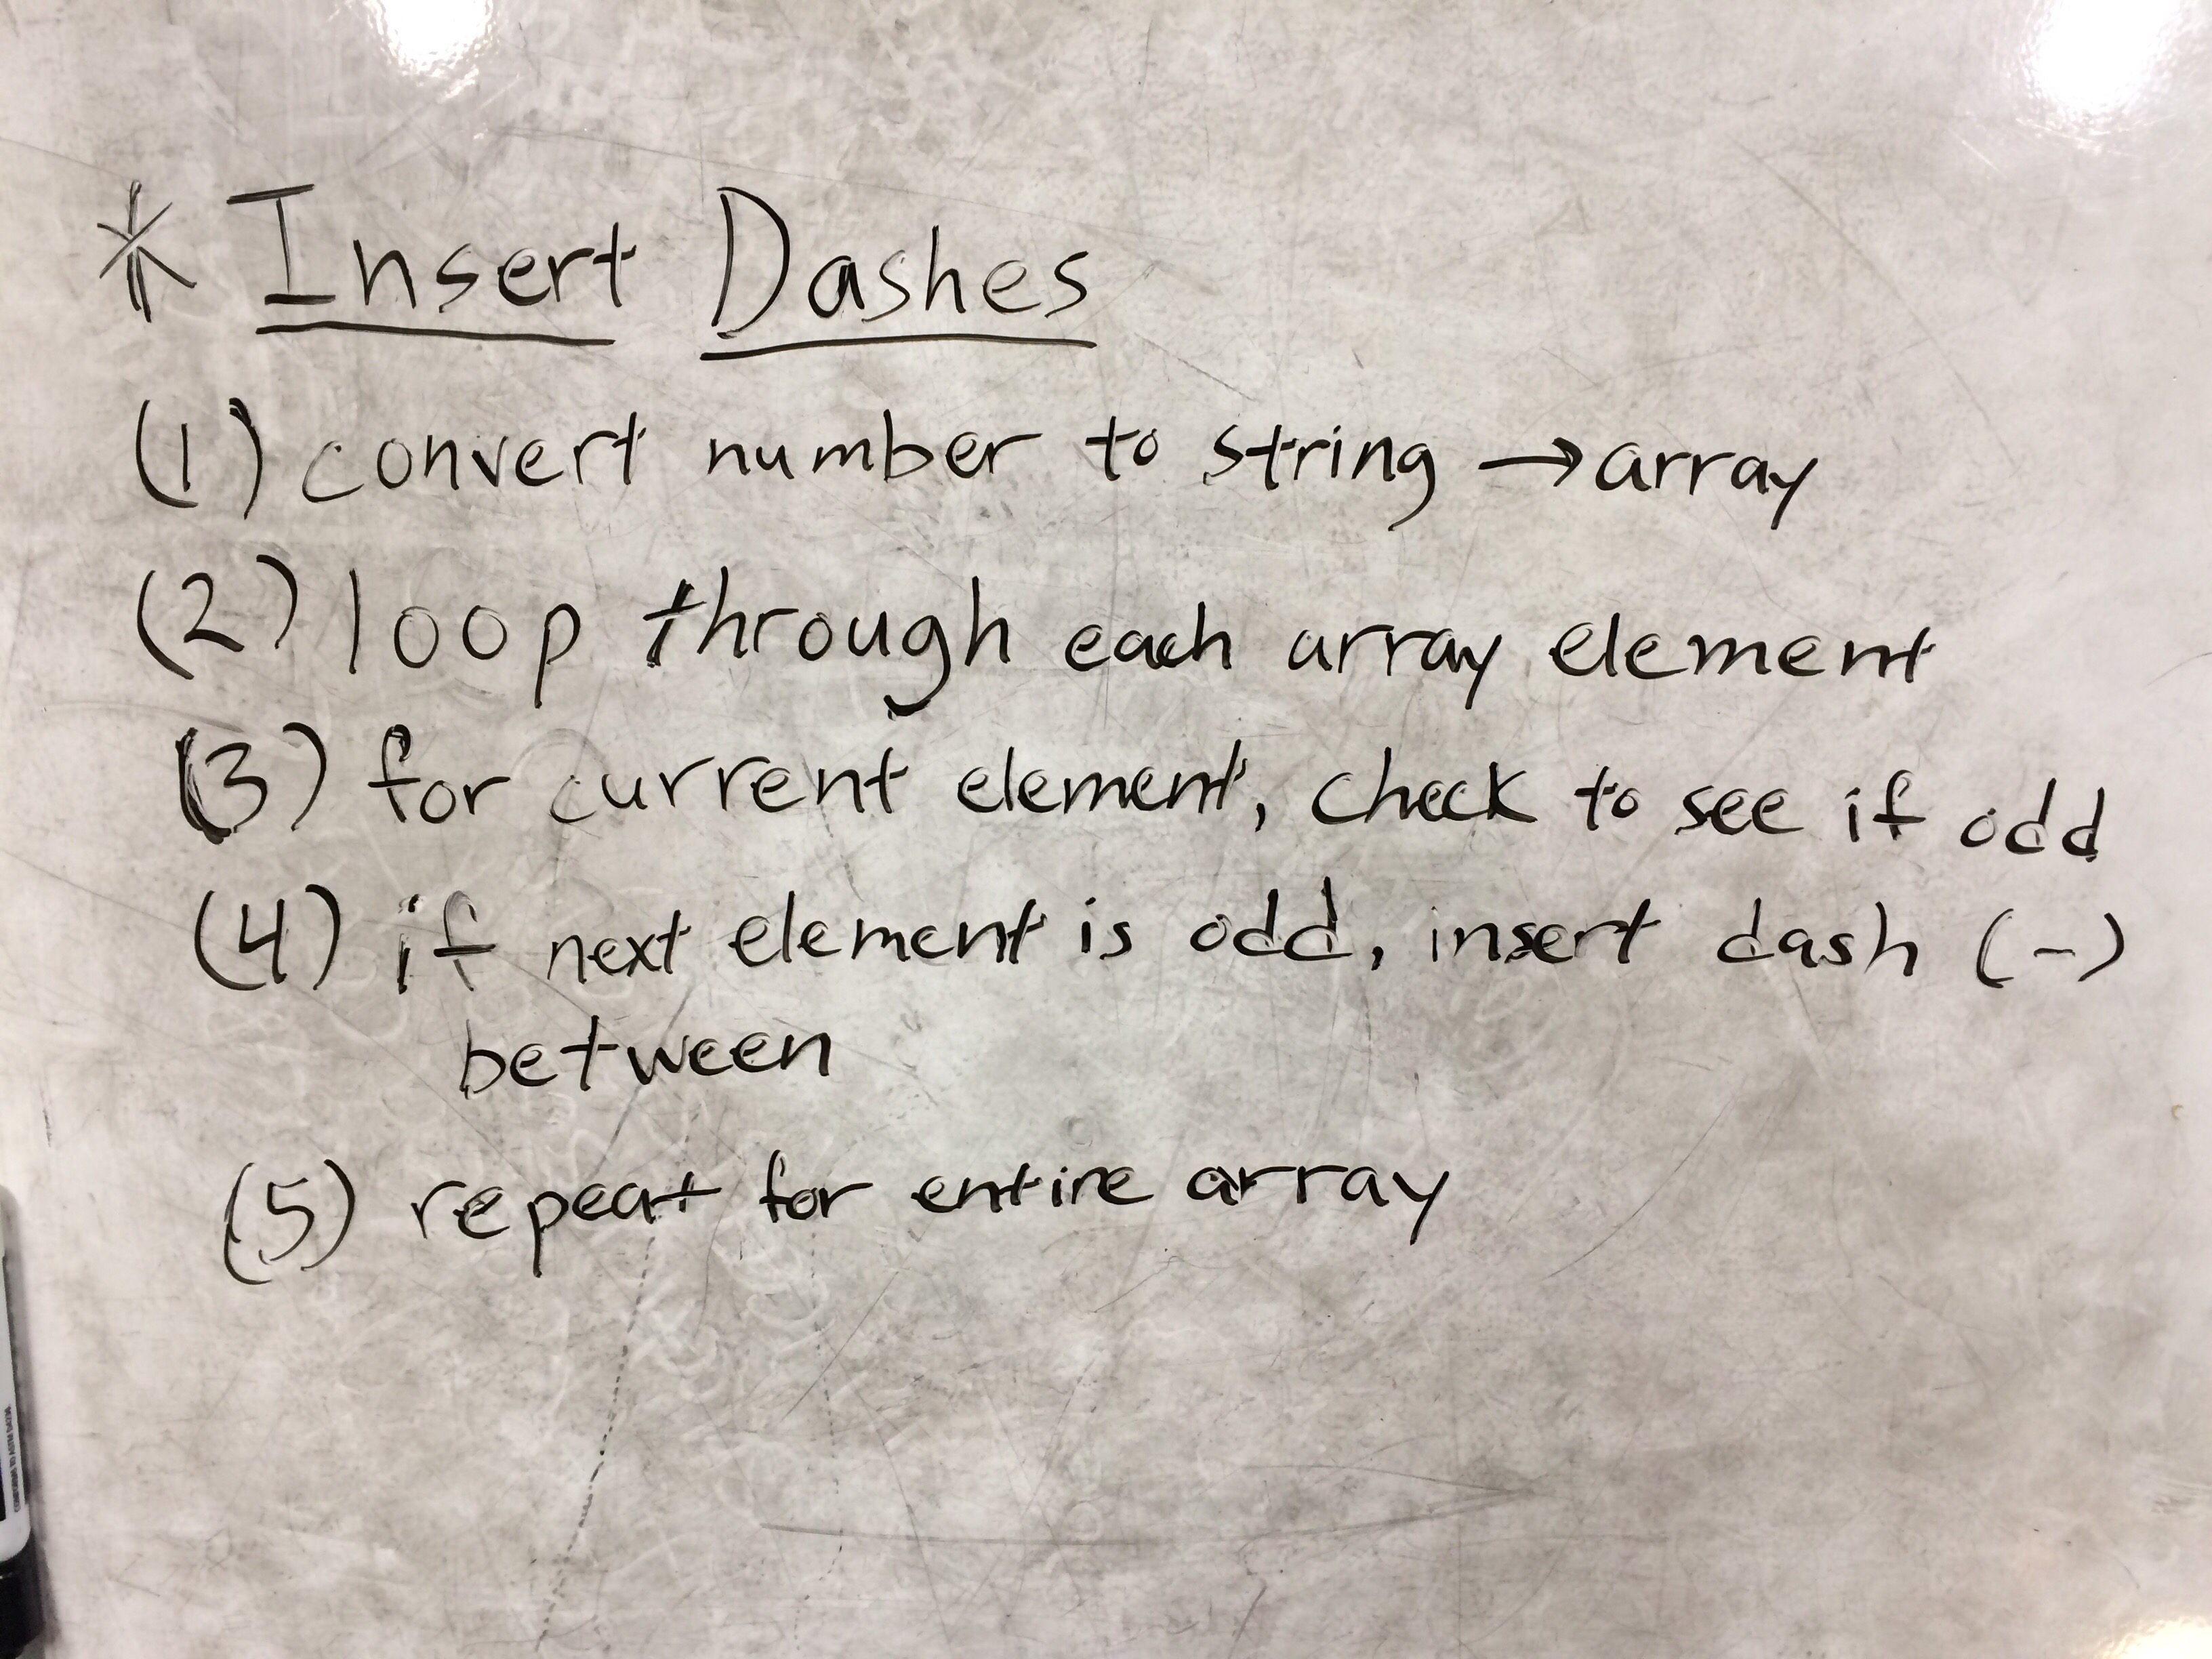 * Insert Dashes
(1) convert number to string → array
(2) loop through each array element
(3) for current element, check to see if odd
(4) if next element is odd, insert dash (-)
between
(5) repeat for entire array